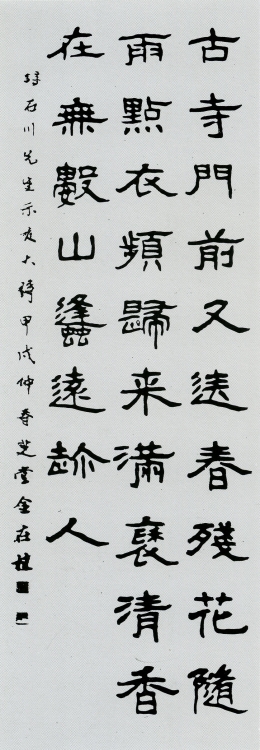 古寺門前又送春殘花隨
雨點衣頻歸来滿褎清香
在無數山蠭遠趁人
録石川先生示友人詩甲戌仲春芝堂金在